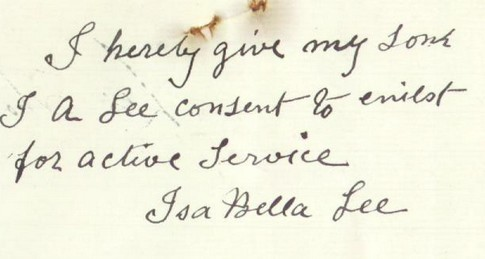 I hereby give my sone
I A Lee consent to enilst
for active Service
IsaBella Lee